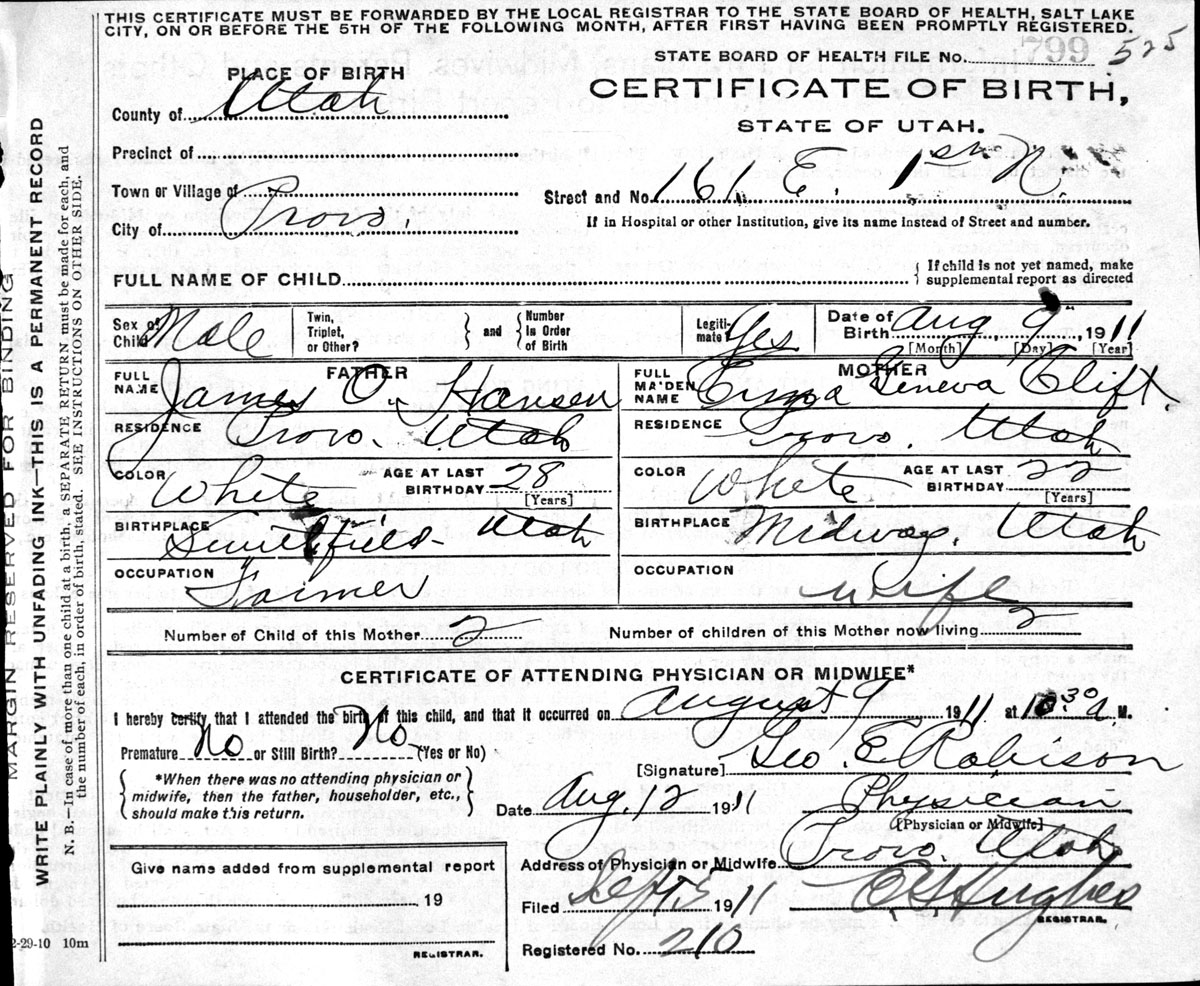 THIS CERTIFICATE MUST BE FORWARDED BY THE LOCAL REGISTRAR TO THE STATE BOARD OF HEALTH, SALT LAKE
CITY, ON OR BEFORE THE 5TH OF THE FOLLOWING MONTH, AFTER FIRST HAVING BEEN PROMPTLY REGISTERED.
STATE BOARD OF HEALTH FILE No. 799 525
PLACE OF BIRTH
CERTIFICATE OF BIRTH,
STATE OF UTAH.
County of Utah
Precinct of
Town or Village of
Street and No. 161 E. 1st N.
City of Provo.
If in Hospital or other Institution, give its name instead of Street and number.
FULL NAME OF CHILD
{ If child is not yet named, make
supplemental report as directed
Sex of Child Male
Twin, Triplet, or Other?
} and {
Number in Order of Birth
Legiti- mate? Yes
Date of Birth Aug 9 1911
[Month] [Day] [Year]
FATHER
FULL NAME James O. Hansen
MOTHER
FULL MAIDEN NAME Geneva Clift.
RESIDENCE Provo. Utah
RESIDENCE Provo. Utah
COLOR White
AGE AT LAST BIRTHDAY 28
[Years]
COLOR White
AGE AT LAST BIRTHDAY 22
[Years]
BIRTHPLACE Smithfield Utah
BIRTHPLACE Midway, Utah
OCCUPATION Farmer
OCCUPATION wife
Number of Child of this Mother 2
Number of children of this Mother now living 2
CERTIFICATE OF ATTENDING PHYSICIAN OR MIDWIFE*
I hereby certify that I attended the birth of this child, and that it occurred on August 9 1911 at 10 30 a M.
Premature No or Still Birth? No (Yes or No)
{ *When there was no attending physician or
midwife, then the father, householder, etc.,
should make this return. }
[Signature] Geo. E Robison
Date Aug. 12 1911
Physician
[Physician or Midwife]
Give name added from supplemental report
Address of Physician or Midwife Provo. Utah
19
Filed Sept 5 1911
Hughes
REGISTRAR.
REGISTRAR.
Registered No. 210
2-29-10 10m
MARGIN RESERVED FOR BINDING
WRITE PLAINLY WITH UNFADING INK—THIS IS A PERMANENT RECORD
N. B.—In case of more than one child at a birth, a SEPARATE RETURN must be made for each, and
the number of each, in order of birth, stated. SEE INSTRUCTIONS ON OTHER SIDE.